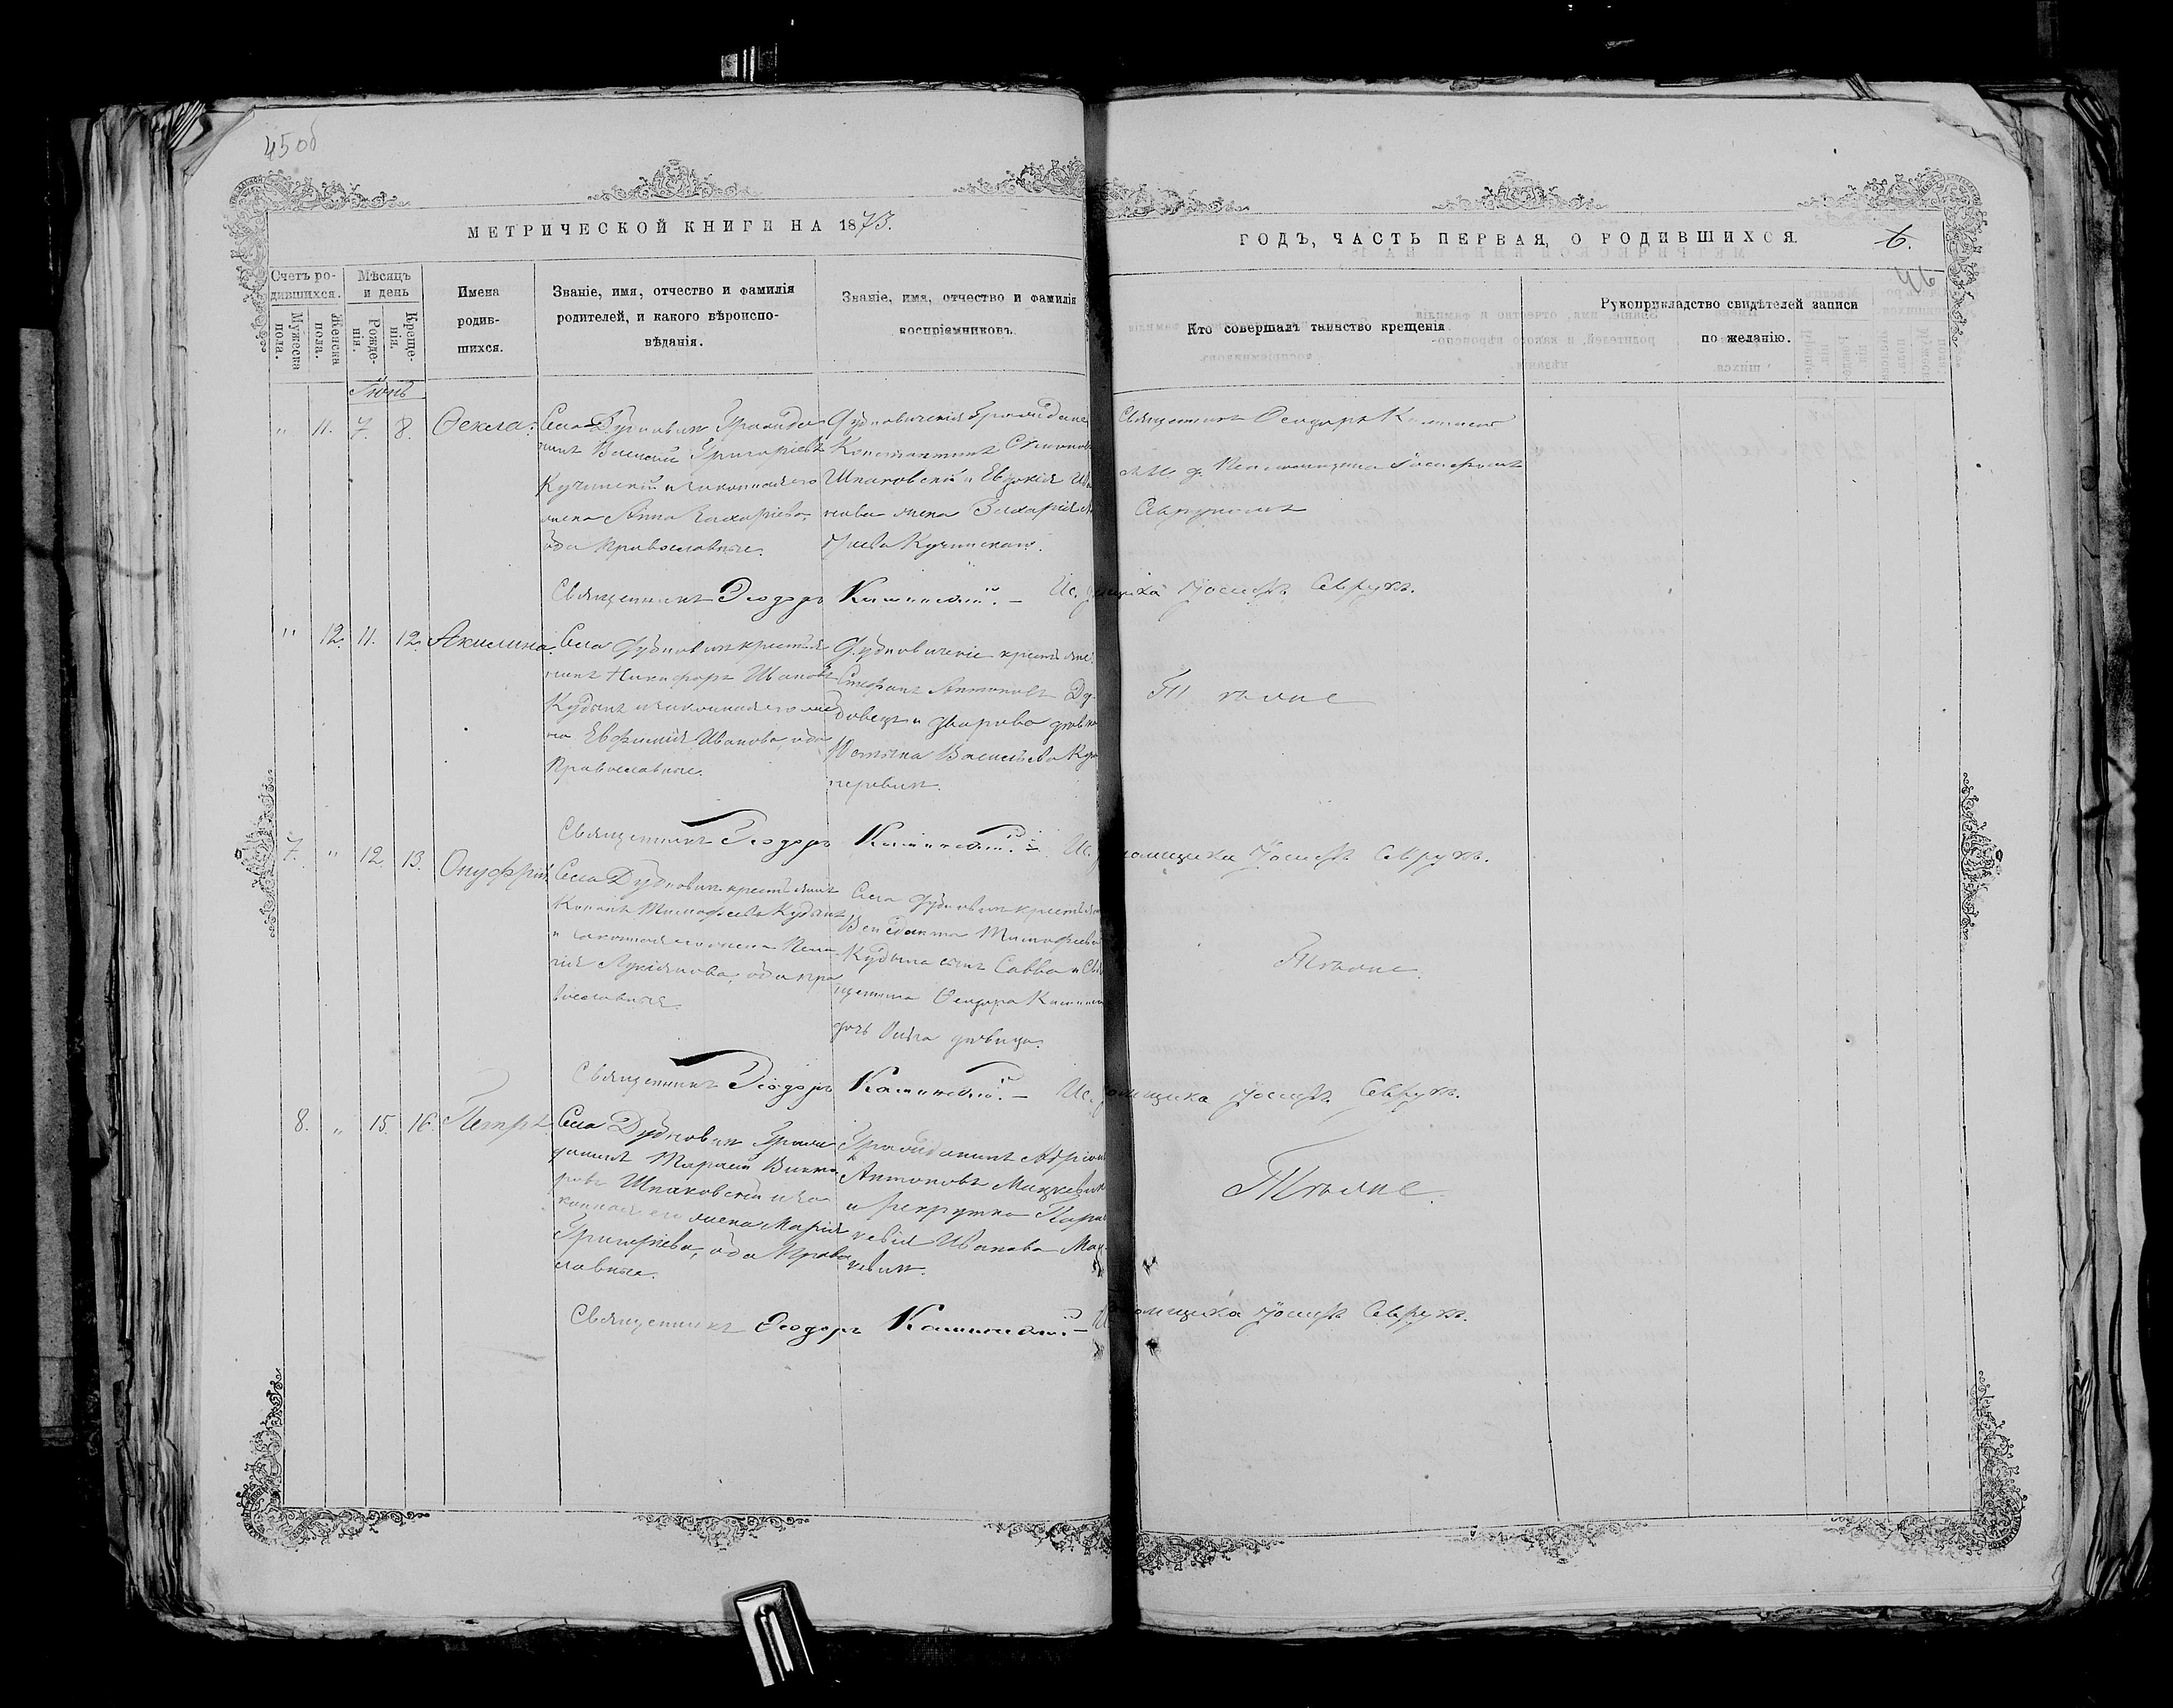 45 об
МЕТРИЧЕСКОЙ КНИГИ НА 1873.
ГОДЪ, ЧАСТЬ ПЕРВАЯ, О РОДИВШИХСЯ.
6.
46
Счетъ родившихся.
Мужеска пола.
Женска пола.
Мѣсяцъ и день
Рожденія.
Крещенія.
Имена
родив-
шихся.
Званіе, имя, отчество и фамилія
родителей, и какого вѣроиспо-
вѣданія.
Званіе, имя, отчество и фамилія
воспріемниковъ.
Кто совершалъ таинство крещенія
Рукоприкладство свидѣтелей записи
по желанію.
Іюнь
" 11. 7. 8. Ѳекла.
Села Дубновичъ Гражда
нинъ Василій Григоріевъ
Кучинскій и законная его
жена Анна Захаріева,
оба православные.
Дубновичскія Граждане
Константинъ
Шпаковскій и Евдокія
жена Захарія
Кучинскаго.
Священникъ Ѳеодоръ
Псаломщика Іосифомъ
Севрукомъ
Священникъ Ѳеодоръ Каминскій. – Ис. Псаломщика Іосифъ Севрукъ.
" 12. 11. 12. Акилина.
Села Дубновичъ крестья
нинъ Никифоръ Ивановъ
Кудынъ и законная его же
на Евфимія Иванова, оба
Православные.
Дубновичскіе крестьяне
Стефанъ Антоновъ Ду-
довецъ и
Васильева
Тѣ же
Священникъ Ѳеодоръ Каминскій. – Ис. Псаломщика Іосифъ Севрукъ.
7. " 12. 13. Онуфрій
Села Дубновичъ крестьянинъ
Кононъ Тимофеевъ Кудынъ
и законная его жена Пела
гія Лукіянова, оба пра
вославныя.
Села Дубновичъ крестьян
Тимофеева
Кудына сынъ Савва и Свя
щенника Ѳеодора Каминск
дочь дѣвица.
Тѣ же
Священникъ Ѳеодоръ Каминскій. – Ис. Псаломщика Іосифъ Севрукъ.
8. " 15. 16. Петръ.
Села Дубновичъ Граж
данинъ Тарасій Викто
ровъ Шпаковскій и за
конная его жена Марія
Григоріева, оба Право
славные.
Гражданинъ Адріанъ
Антоновъ Мицкевичъ
и рекрутка Парас
кевія Иванова Мац
кевичъ.
Тѣ же
Священникъ Ѳеодоръ Каминскій – Ис. Псаломщика Іосифъ Севрукъ.